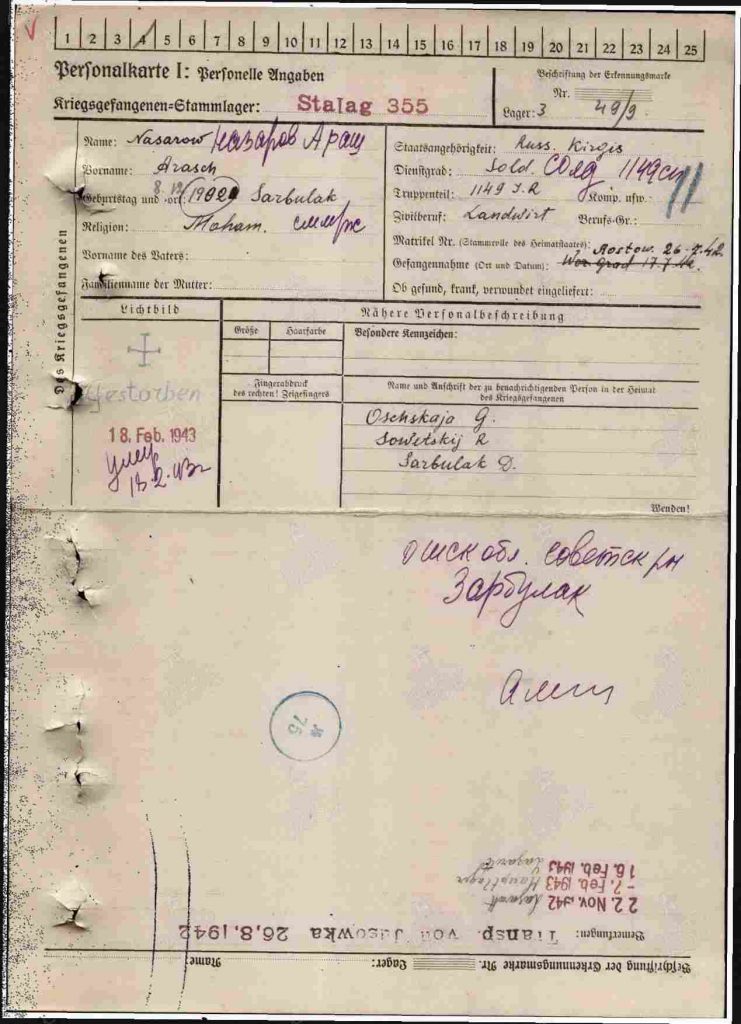 1 2 3 4 5 6 7 8 9 10 11 12 13 14 15 16 17 18 19 20 21 22 23 24 25
Personalkarte I: Personelle Angaben
Kriegsgefangenen-Stammlager: Stalag 355
Beschriftung der Erkennungsmarke
Nr.
Lager: 3 49/9
Des Kriegsgefangenen
Name: Nasarow Назаров Араш
Vorname: Arasch
Geburtstag und -ort: Sarbulak
Religion: Moham.
Vorname des Vaters:
Familienname der Mutter:
Staatsangehörigkeit: Russ. Kirgis
Dienstgrad: Sold. Солд 1149 сп
Truppenteil: 1149 I.R Komp. usw.: 11
Zivilberuf: Landwirt Berufs-Gr.:
Matrikel Nr. (Stammrolle des Heimatstaates): Rostow. 26.7.42.
Gefangennahme (Ort und Datum):
Ob gesund, krank, verwundet eingeliefert:
Lichtbild
Gestorben
18. Feb. 1943
умер
Nähere Personalbeschreibung
Größe Haarfarbe Besondere Kennzeichen:
Fingerabdruck
des rechten! Zeigefingers
Name und Anschrift der zu benachrichtigenden Person in der Heimat
des Kriegsgefangenen
Oschskaja G.
Sowetskij R
Sarbulak D.
Wenden!
Ошск обл. советск рн
Зарбулак
76
16. Feb. 1943 Lazarett
-7. Feb. 1943 Hauptlager
22. Nov. 1942 Lazarett
Bemerkungen: Transp. von Jusowka 26.8.1942
Beschriftung der Erkennungsmarke Nr. Lager: Name: